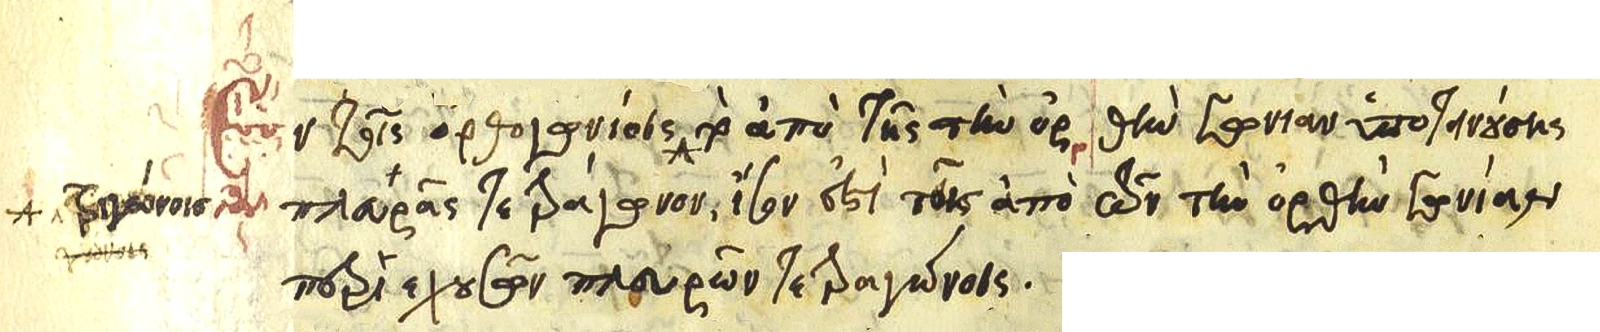 Ἐν τοῖς ὀρθογωνίοις τὸ ἀπὸ τῆς τὴν ὀρθὴν γωνίαν ὑποτεινούσης
τριγώνοις πλευρᾶς τετράγωνον, ἴσον ἐστὶ τοῖς ἀπὸ τῶν τὴν ὀρθὴν γωνίαν
περιεχουσῶν πλευρῶν τετραγώνοις.